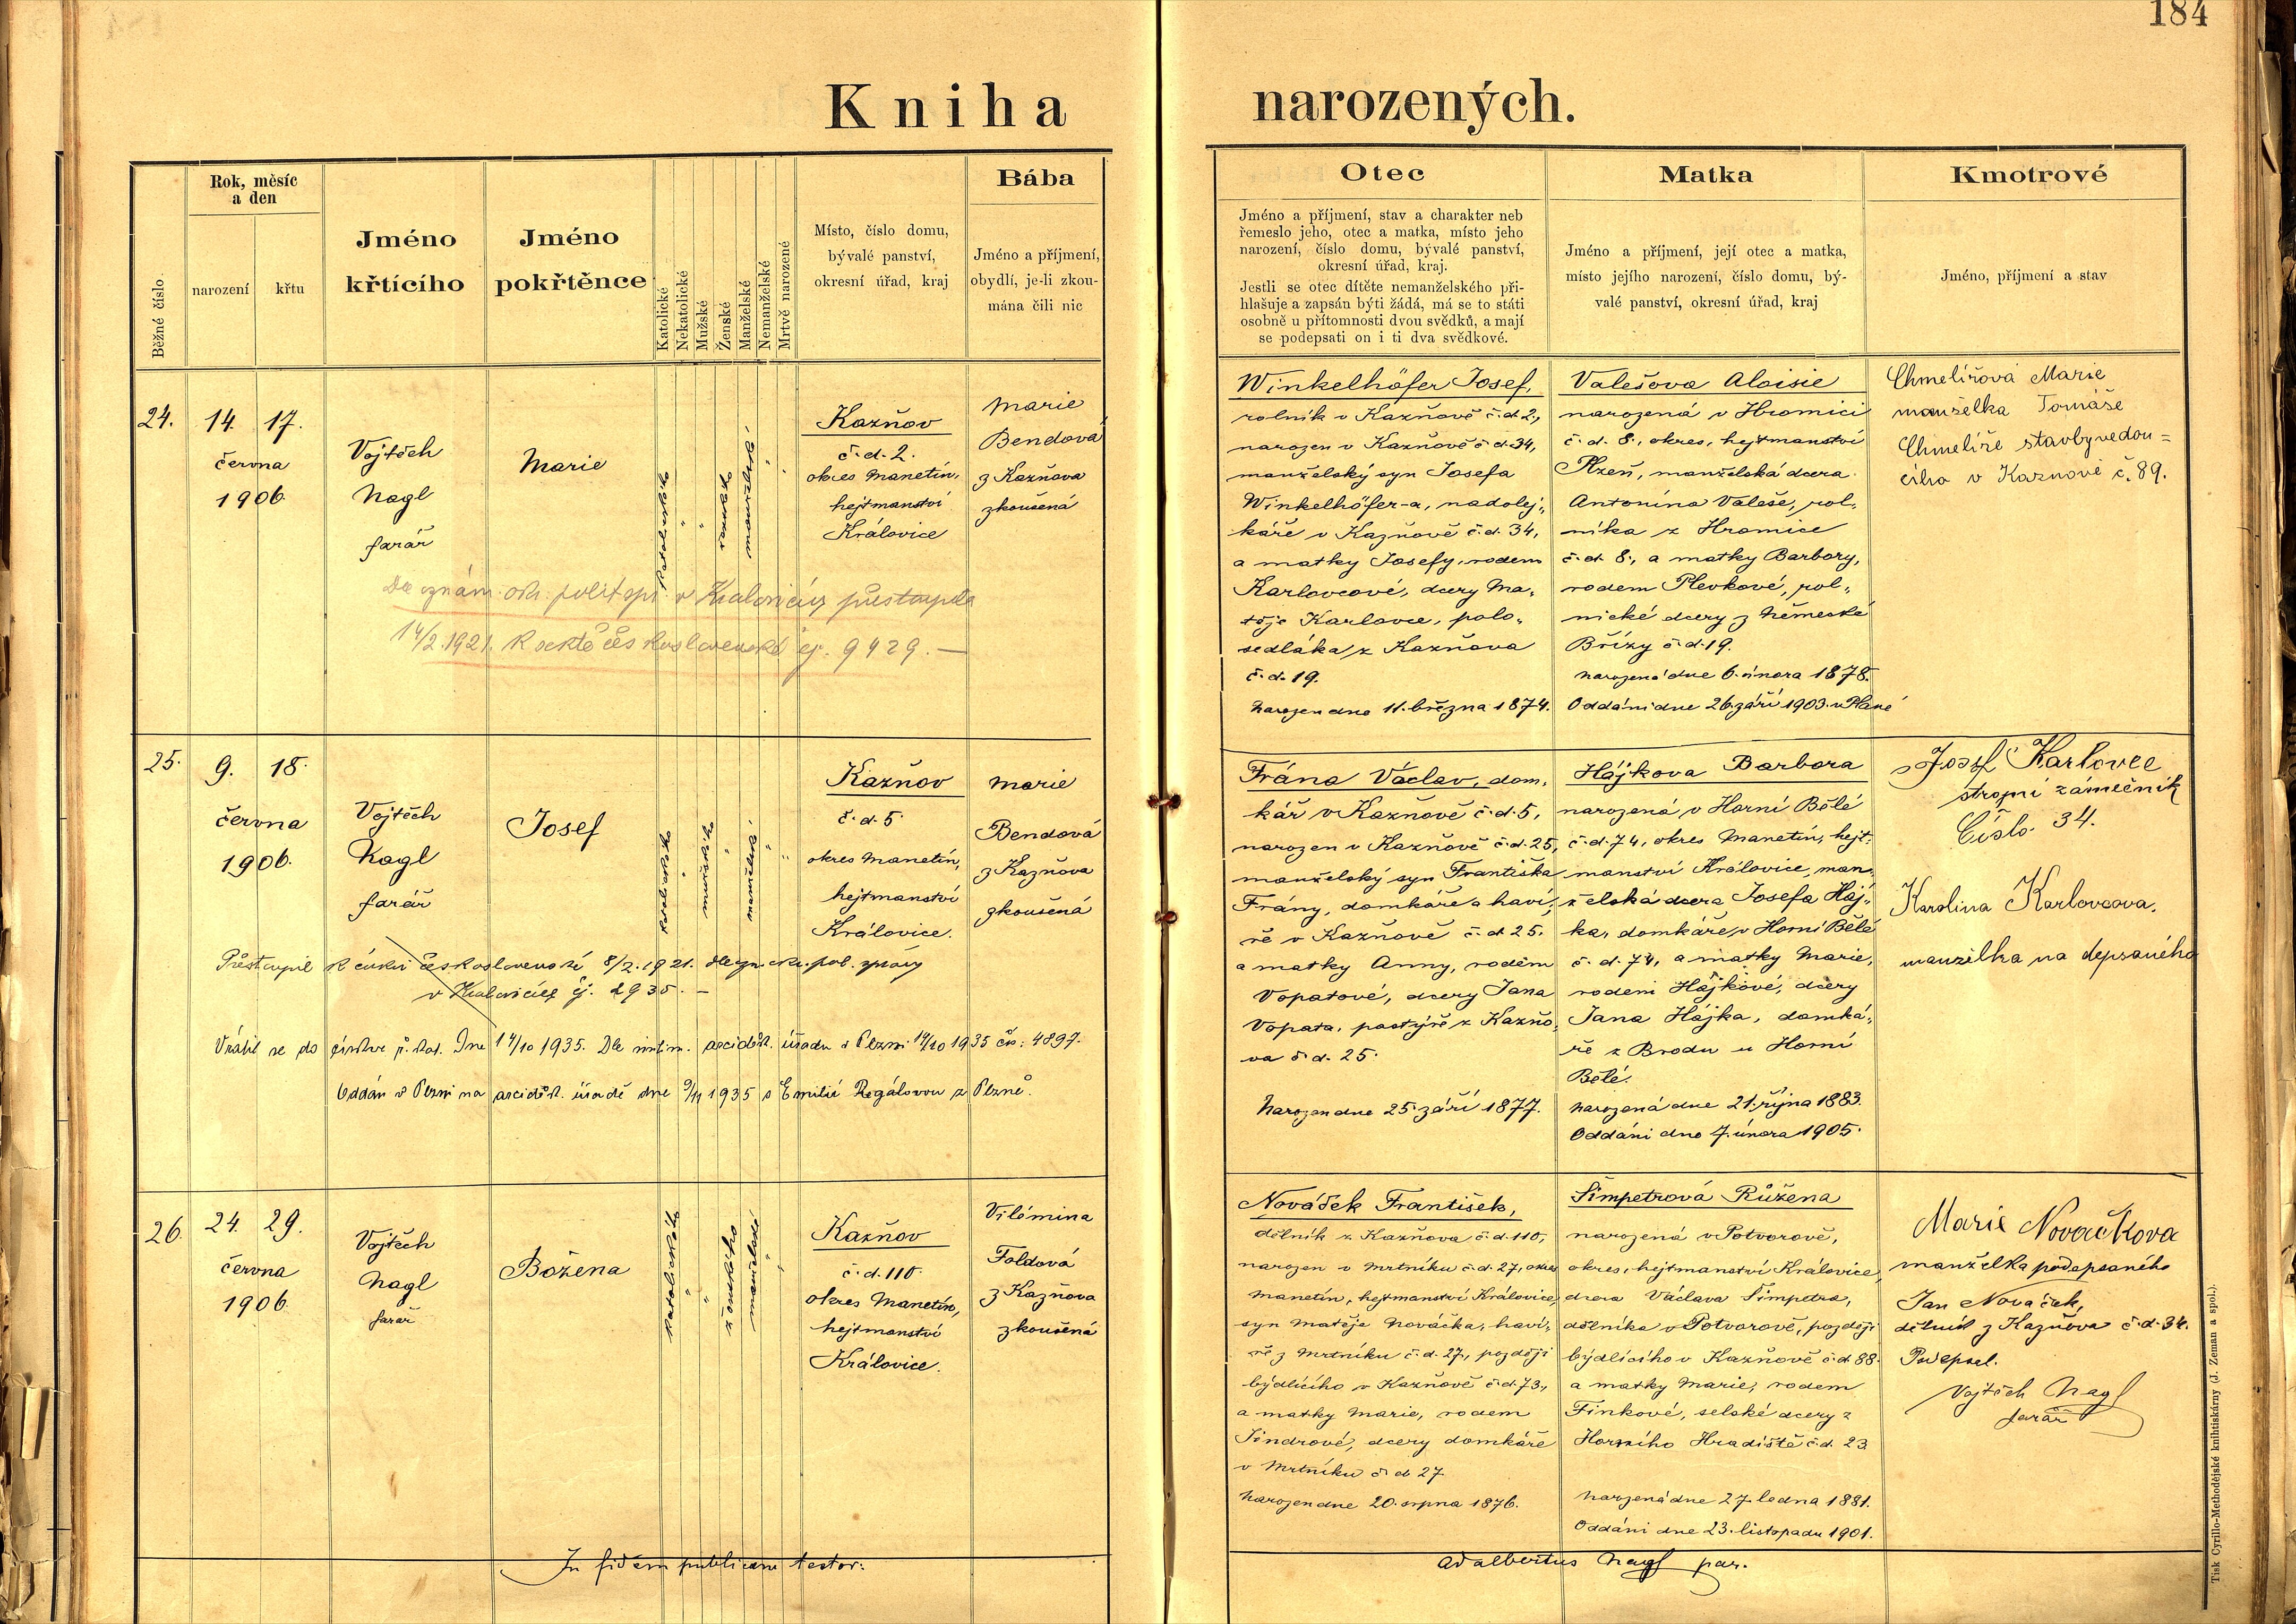 184
Kniha narozených.
Běžné číslo
Rok, měsíc
a den
narození
křtu
Jméno
křtícího
Jméno
pokřtěnce
Katolické
Nekatolické
Mužské
Ženské
Manželské
Nemanželské
Mrtvě narozené
Místo, číslo domu,
bývalé panství,
okresní úřad, kraj
Bába
Jméno a příjmení,
obydlí, je-li zkou-
mána čili nic
Otec
Jméno a příjmení, stav a charakter neb
řemeslo jeho, otec a matka, místo jeho
narození, číslo domu, bývalé panství,
okresní úřad, kraj.
Jestli se otec dítěte nemanželského při-
hlašuje a zapsán býti žádá, má se to státi
osobně u přítomnosti dvou svědků, a mají
se podepsati on i ti dva svědkové.
Matka
Jméno a příjmení, její otec a matka,
místo jejího narození, číslo domu, bý-
valé panství, okresní úřad, kraj
Kmotrové
Jméno, příjmení a stav
24.
14. 17.
června
1906.
Vojtěch
Nagl
farář
Marie
katolického
ženského
manželské
Kazňov
č. d. 2.
okres Manetín,
hejtmanství
Královice
Marie
Bendová
z Kazňova
zkoušená
Dle oznám. okr. polit. spr. v Kralovicích přestoupila
14/2. 1921. k sektě československé čj. 9429. —
Winkelhöfer Josef,
rolník v Kazňově č. d. 2.,
narozen v Kazňově č. d. 34,
manželský syn Josefa
Winkelhöfer-a, nadolej„
káře v Kazňově č. d. 34,
a matky Josefy, rodem
Karlovcové, dcery Ma„
těje Karlovce, polo„
sedláka z Kazňova
č. d. 19.
Narozen dne 11. března 1874.
Valešova Aloisie
narozená v Hromici
č. d. 8., okres, hejtmanství
Plzeň, manželská dcera
Antonína Valeše, rol„
níka z Hromice
č. d. 8., a matky Barbory,
rodem Plevkové, rol„
nické dcery z Německé
Břízy č. d. 19.
Narozená dne 6. února 1878.
Oddáni dne 26. září 1903. v Plané
Chmelířová Marie
manželka Tomáše
Chmelíře stavbyvedou=
cího v Kaznově č. 89.
25.
9. 18.
června
1906.
Vojtěch
Nagl
farář
Josef
katolického
mužského
manželské
Kazňov
č. d. 5.
okres Manetín,
hejtmanství
Královice.
Marie
Bendová
z Kazňova
zkoušená
Přestoupil k církvi československé 8/2. 1921. dle ozn. okr. pol. správy
v Kralovicích čj. 2935. —
Vrátil se do církve ř. kat. Dne 14/10 1935. Dle intim. arciděk. úřadu v Plzni 14/10 1935 čís: 4897.
Oddán v Plzni na arciděk. úřadě dne 9/11 1935 s Emilií Regálovou z Plzně.
Frána Václav, dom„
kář v Kazňově č. d. 5,
narozen v Kazňově č. d. 25,
manželský syn Františka
Frány, domkáře a haví„
ře v Kazňově č. d. 25.
a matky Anny, rodem
Vopatové, dcery Jana
Vopata, pastýře z Kazňo„
va č. d. 25.
Narozen dne 25. září 1877.
Hájkova Barbora
narozená v Horní Bělé
č. d. 74, okres Manetín, hejt„
manství Královice, man„
želská dcera Josefa Háj„
ka, domkáře v Horní Bělé
č. d. 74, a matky Marie,
rodem Hájkové, dcery
Jana Hájka, domká„
ře z Brodu u Horní
Bělé.
Narozená dne 21. října 1883.
Oddáni dne 7. února 1905.
Josef Karlovec
strojní zámečník
Číslo. 34.
Karolina Karlovcova,
manželka na depsaného
26.
24. 29.
června
1906.
Vojtěch
Nagl
farář
Božena
katolického
ženského
manželské
Kazňov
č. d. 110.
okres Manetín,
hejtmanství
Královice.
Vilémina
Foldová
z Kazňova
zkoušená
Nováček František,
dělník z Kazňova č. d. 110,
narozen v Mrtníku č. d. 27, okres
Manetín, hejtmanství Královice,
syn Matěje Nováčka, haví„
ře z Mrtníku č. d. 27., později
bydlícího v Kazňově č. d. 73.,
a matky Marie, rodem
Jindrové, dcery domkáře
v Mrtníku č. d. 27
Narozen dne 20. srpna 1876.
Šimpetrová Růžena
narozená v Potvorově,
okres, hejtmanství Královice,
dcera Václava Šimpetra,
dělníka v Potvorově, později
bydlícího v Kazňově č. d. 88.
a matky Marie, rodem
Finkové, selské dcery z
Horního Hradiště č. d. 23
Narozená dne 27. ledna 1881.
Oddáni dne 23. listopadu 1901.
Marie Nováčkova
manželka podepsaného
Jan Nováček,
dělník z Kazňova č. d. 34.
Podepsal.
Vojtěch Nagl
farář
In fidem publicam testor:
Adalbertus Nagl par.
Tisk Cyrillo-Methodějské knihtiskárny (J. Zeman a spol.).